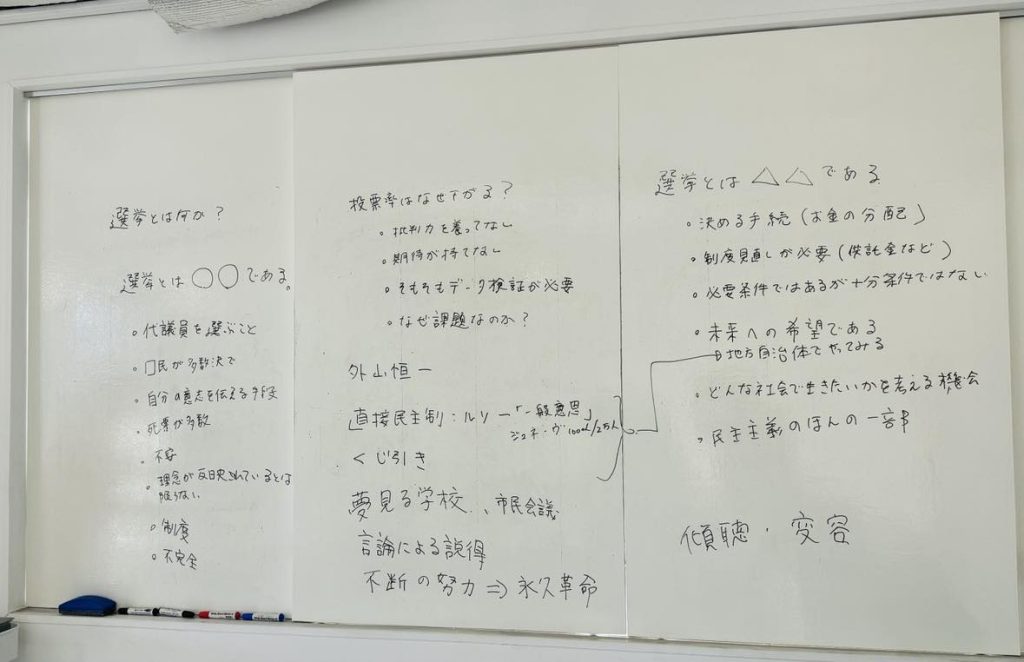 選挙とは何か?
選挙とは〇〇である。
・代議員を選ぶこと
・□民が多数決で
・自分の意志を伝える手段
・死票が多数
・不安
・理念が反映されているとは
限らない
・制度
・不完全
投票率はなぜ下がる?
・批判力を養ってなし
・期待が持てなし
・そもそもデータ検証が必要
・なぜ課題なのか?
外山恒一
直接民主制:ルソー「一般意思」
ジュネーヴ 1000人/2万人
くじ引き
夢見る学校、、市民会議
言論による説得
不断の努力⇒永久革命
選挙とは△△である
・決める手続(お金の分配)
・制度見直しが必要(供託金など)
・必要条件ではあるが十分条件ではない
・未来への希望である
地方自治体でやってみる
・どんな社会で生きたいかを考える機会
・民主主義のほんの一部
傾聴・変容